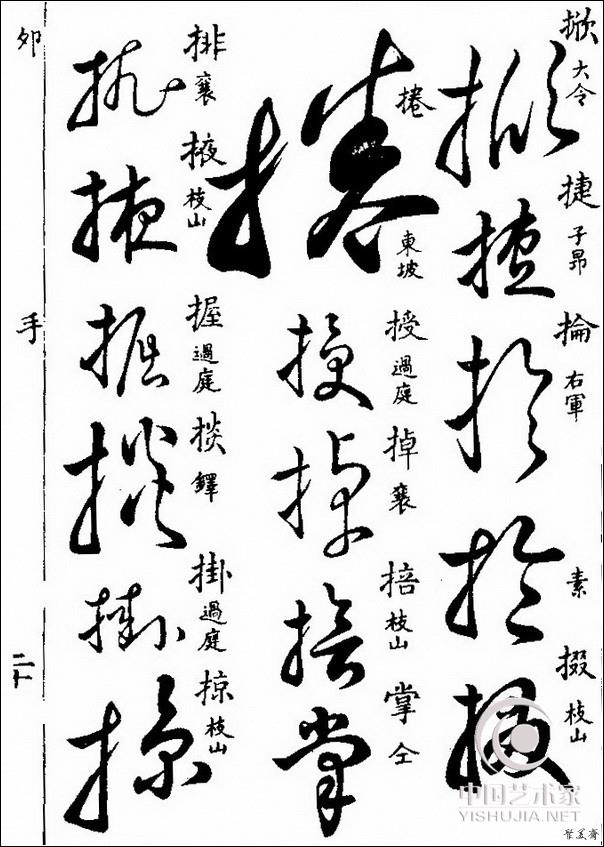 掀 大令
捷 子昂
掄 右軍
素
掇 枝山
捲 東坡
授 過庭
掉 襄
掊 枝山
掌 仝
排 襄
掖 枝山
握 過庭
掞 鐸
掛 過庭
掠 枝山
卯
手
二十
中国艺术家
YISHUJIA.NET